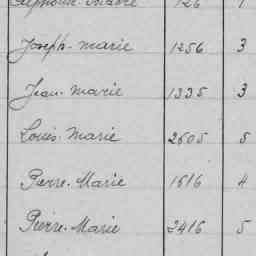 Joseph-marie 1256 3
Jean-marie 1335 3
Louis-Marie 2605 5
Pierre-Marie 1616 4
Pierre-Marie 2416 5